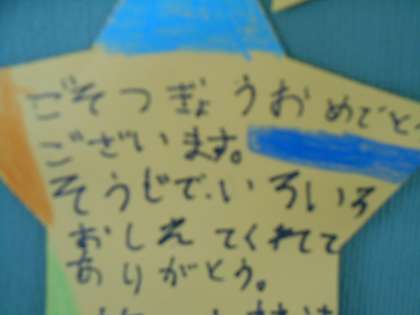 ごそつぎょうおめでとう
ございます。
そうじで、いろいろ
おしえてくれてて
ありがとう。